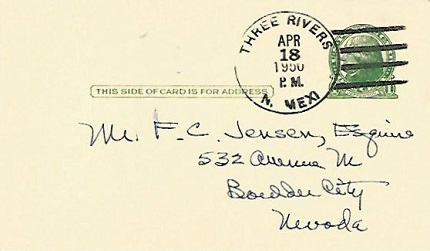 THREE RIVERS
APR
18
1950
P.M.
N. MEXI
THIS SIDE OF CARD IS FOR ADDRESS
Mr. F. C. Jensen, Esquire
532 Avenue M
Boulder City
Nevada